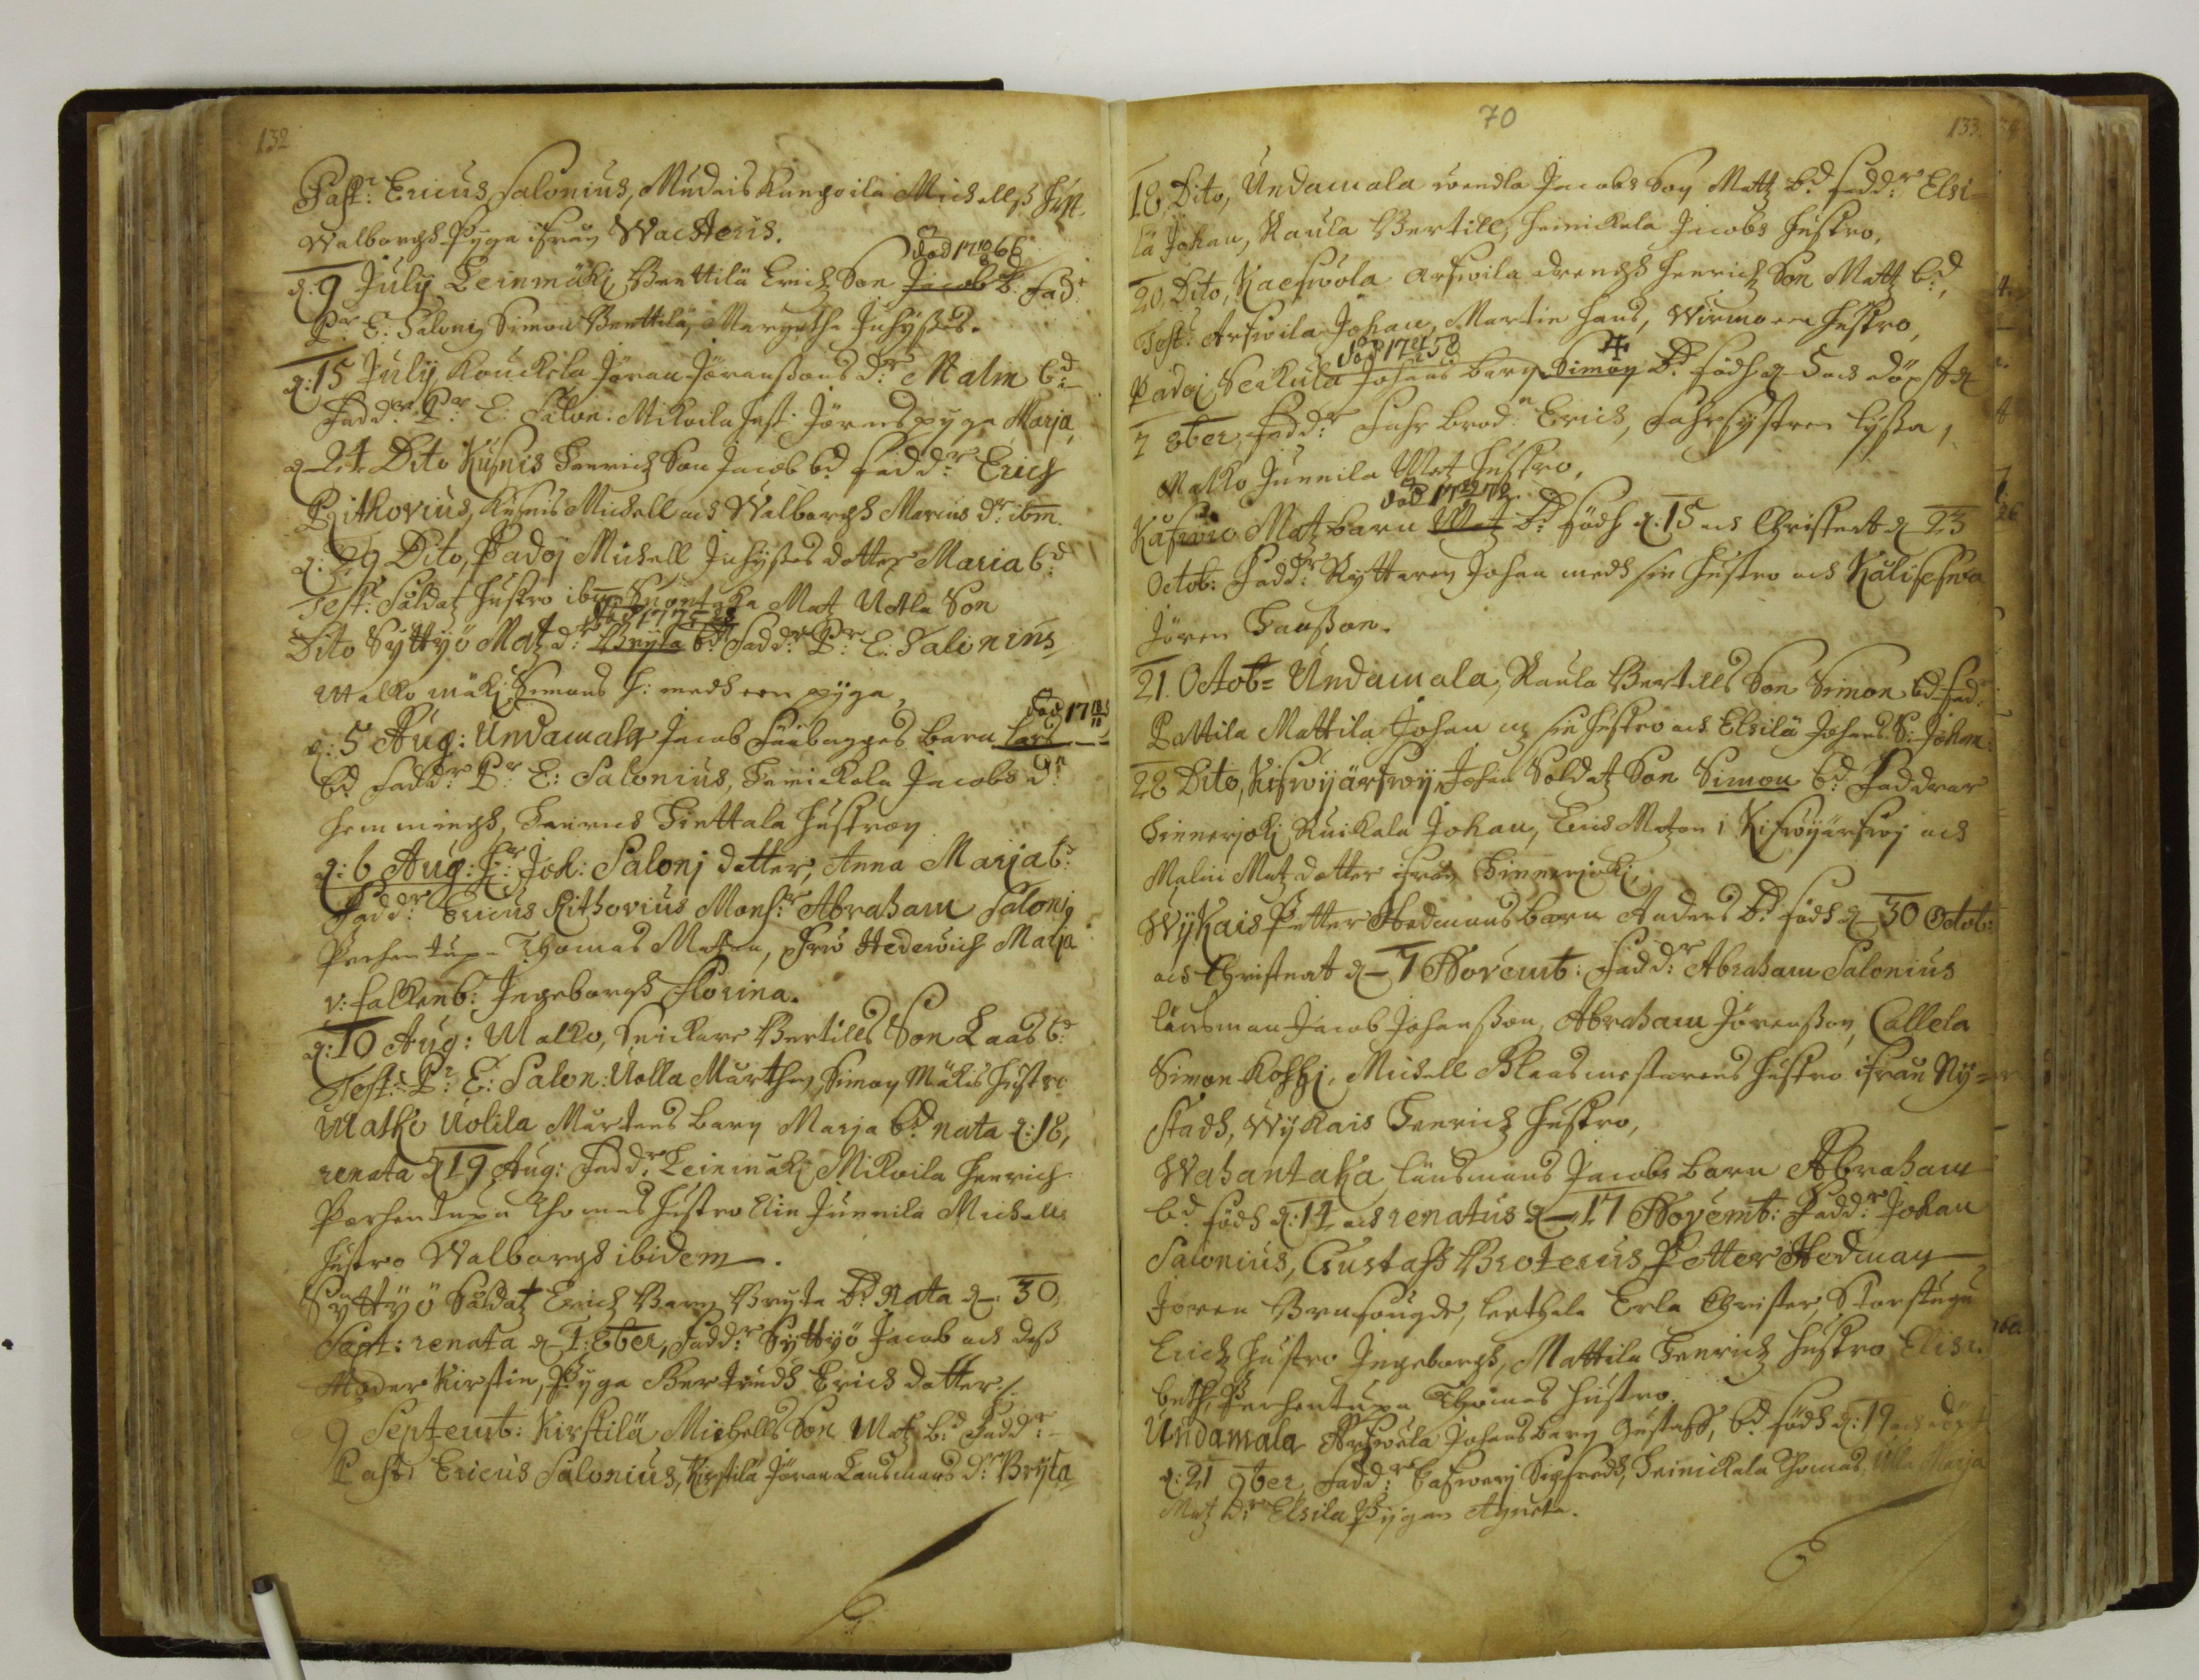 132
Past:r Ericus Salonius, Mudais Kangoila Michells hust.
Walborgh Pyga ifrån Wachteris.
död 17 66
d. 9 July Leinmäki Benttilä Erich Son Jacob b. fad:
Pr E. Saloni Simon Benttilä, Margetha Inhyses.
d: 15 July Kouckela Jöran Jöranssons d:r Malin b:d
Fadd:r P:r E: Salon: Mikoila hust. Jörens pyga Marja,
d 24 Dito Kusnis Henrich Son Jacob b:d fadd:r Erich
Rithovius, Kusnis Michell och Walborgh Marcus d:r ibm.
d: 29 Dito, Padoj Michell Inhyses dotter Maria b:d
Test: Soldatz hustro ibm Suontaka Matz Uotila Son
Död 1775
Dito Syttyö Matz d:r Bryta b:d Fadd:r P:r E: Salinius
Walko mäki Simons h: medh een pyga,
död 17
d: 5 Aug: Undamala Jacob barn Lars
b:d Fadd:r P:r E: Salonius, Heinickala Jacobs d:r
hemmingh, Hiettala hustron
d: 6 Aug: H:r Joh: Salonj dotter, Anna Marja b:
Fadd:r Ericus Rithovius Mons:r Abraham Salonj
Perhentupa Thomas Matzon, Fru Hedewich Marja
v: falkenb: Ingeborgh Florina.
d: 10 Aug: Walko, Snickare Bertills Son Laas b:d
Test: P:r E: Salon: Uolla Marthin, Simon Mäkis hustro
Walko Uolila Martens barn Marja b:d nata d: 18,
renata d 19 Aug: Fadd:r Leinmäki Mikoila Henrich
Perhentupa Thomas hustro Elin Junnila Michells
hustro Walborgh ibidem.
Syttyö Soldatz Erich Barn Bryta b:d Nata d. 30
Sept: renata d 1: 8ber, Fadd:r Syttyö Jacob och dess
Moder Kirstin, Pyga Bertrudh Erich dotter
9 Septemb: Kirstilä Michells Son Matz b:d Fadd:r
Past: Ericus Salonius, Kirstilä Jöran Länsmans d:r Bryta
70
133.
18 Dito, Undamala Jacobs Son Matz b:d fadd:r Elsi-
lä Johan, Kaula Bertill, Heinickala Jacobs hustro,
20 Dito, Kaefwola Arfwila drengh Henrich Son Matz b:d,
Test: Arfwila Johan, Martin Hans, Wirmoen hustro,
död 17 58
Padoj Seikula Johans barn Simon b: födh d 5 och döpt d
7 8ber, Fadd:r Fahr brod:n Erich, Fahrsystren Lysa,
Walko Junnila Matz hustro,
död 17 72
Kafwio Matz barn Matz b: födh d: 15 och Christnat d 23
Octob: Fadd:r Ryttaren Johan medh sin hustro och Kälisefwa
Jören Hansson.
21. Octob= Undamala, Kaula Bertills Son Simon b:d fad:
Pättila Mattila Johan m sin hustro och Elsilä Johans S: Johan:
28 Dito, Kifwijärfwij Johan Soldatz Son Simon b:d Faddrar
Hinnerjoki Ruikala Johan, Erich Matzon i Kifwijärfwj och
Malin Matz dotter ifrån Hinnerjoki,
Wijkais Petter Hedmans barn Anders b:d födh d 30 Octob:
och Christnat d 7 Novemb: Fadd:r Abraham Salonius
länsman Jacob Johansson, Abraham Jöransson, Callela
Simon Koski, Michell Blaas mestarens hustro ifrån Ny=
stadh, Wijkais Henrich hustro,
Wahantaka länsmans Jacobs barn Abraham
b:d födh d: 14 och renatus d 17 Novemb: Fadd:r Johan
Salonius, Gustaf Broterus, Petter Hedman
Jören Brufougde, Leethala Erla Christer, Storstugu
Erich hustro Ingeborgh, Mattila Henrich hustro Elisa-
beth, Perhentupa Thomas hustro
Undamala Arfwela Johans barn Gustaff, b:d födh d: 19 och döpt
d: 21 9ber Fadd:r Sigfredh, Heinickala Thomas, Ulla Marja
Matz d:r Elsila Pygan Agneta.